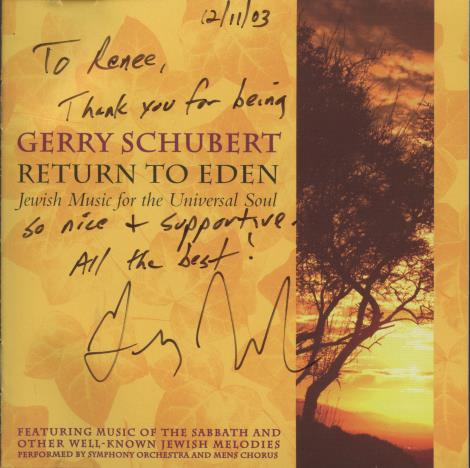 12/11/03
To Renee,
Thank you for being
GERRY SCHUBERT
RETURN TO EDEN
Jewish Music for the Universal Soul
so nice + supportive.
All the best!
FEATURING MUSIC OF THE SABBATH AND
OTHER WELL-KNOWN JEWISH MELODIES
PERFORMED BY SYMPHONY ORCHESTRA AND MENS CHORUS